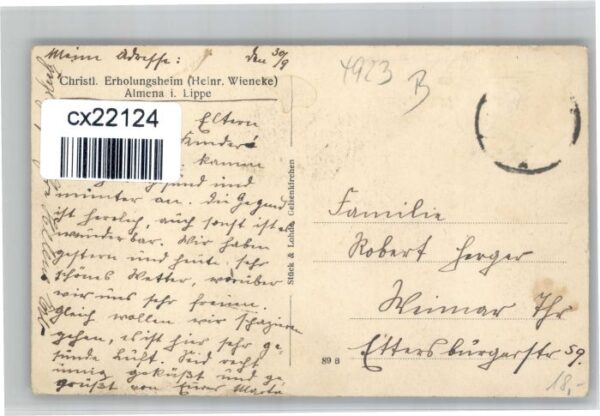 Meine Adresse: den 30/9
Christl. Erholungsheim (Heinr. Wieneke)
Almena i. Lippe
cx22124
Eltern
Kinder!
kamen
und
munter an. Die Gegend
ist herrlich, auch sonst ist es
wunderbar. Wir haben
gestern und heute sehr
schönes Wetter, worüber
wir uns sehr freuen.
Gleich wollen wir spazieren
gehen, es ist hier sehr ge-
sunde Luft. Seid recht
innig geküßt und ge-
grüßt von Eurer Marta
Stück & Lohde, Gelsenkirchen
4923
B
Familie
Robert Herger
Weimar Thr
Ettersburgerstr 59.
89 B
18,-